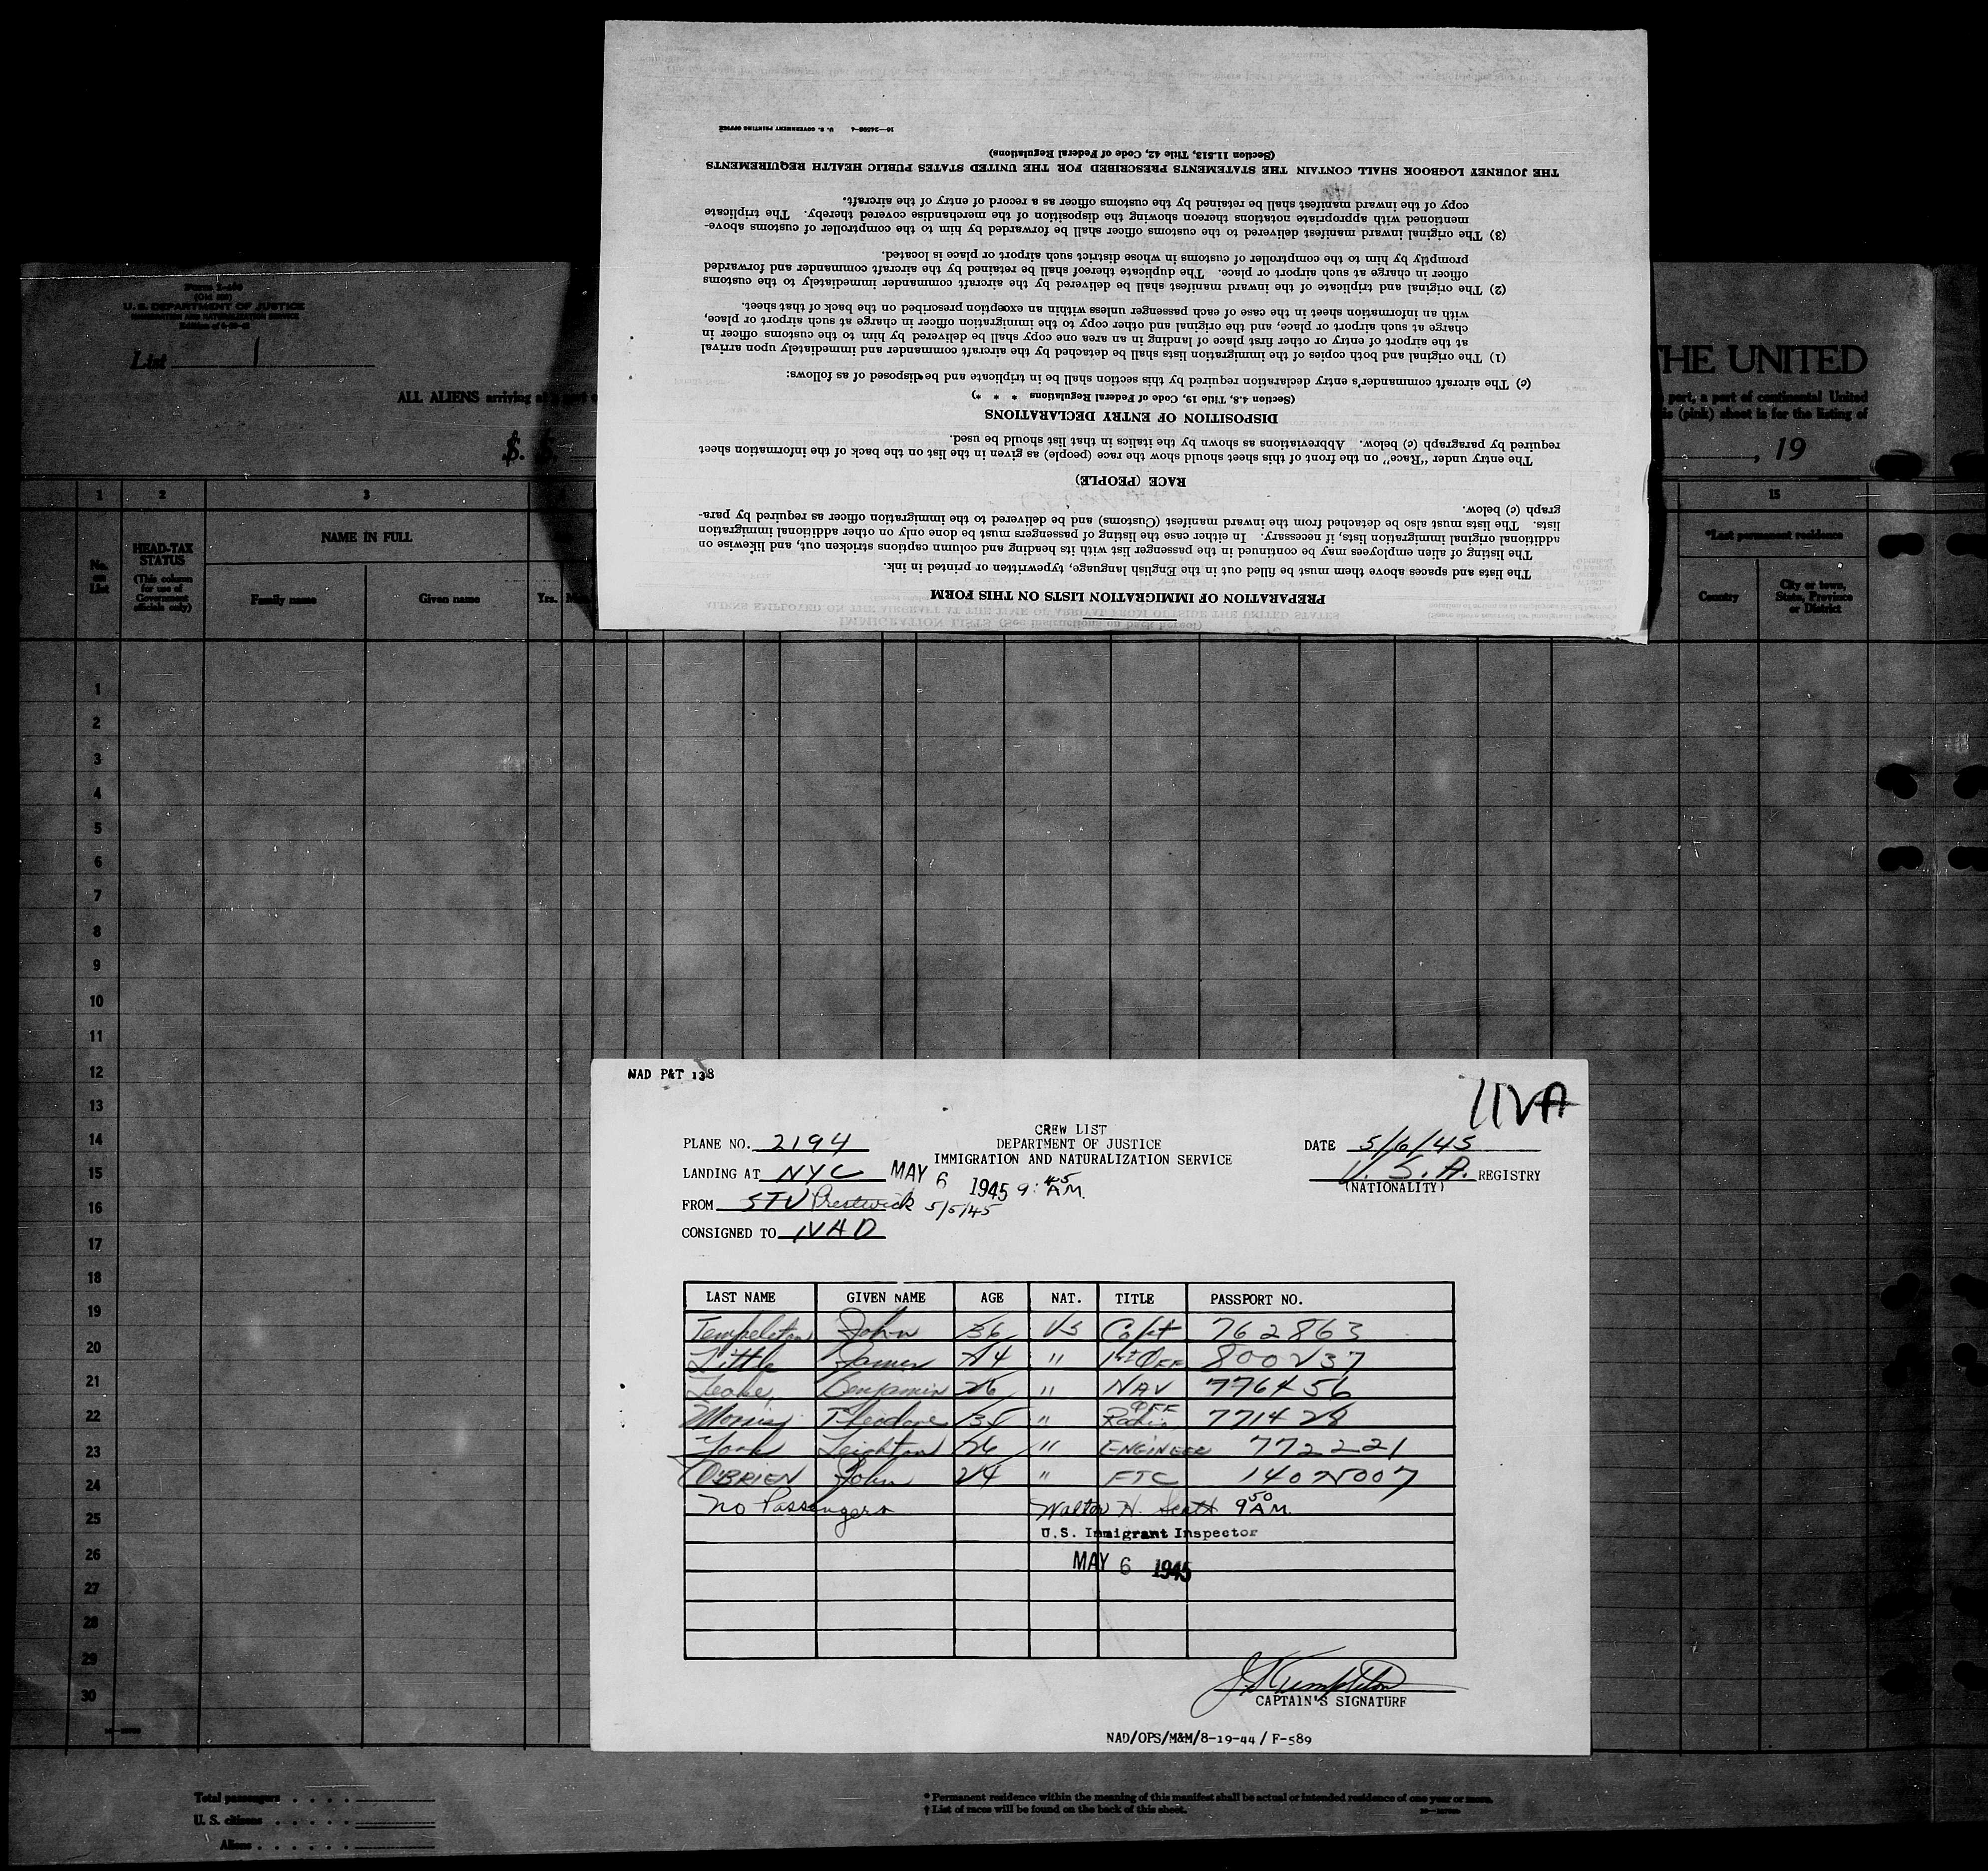 THE JOURNEY LOGBOOK SHALL CONTAIN THE STATEMENTS PRESCRIBED FOR THE UNITED STATES PUBLIC HEALTH REQUIREMENTS
(Section 11.513, Title 42, Code of Federal Regulations)
U. S. GOVERNMENT PRINTING OFFICE 16—24598-4
PREPARATION OF IMMIGRATION LISTS ON THIS FORM
The lists and spaces above them must be filled out in the English language, typewritten or printed in ink.
The listing of alien employees may be continued in the passenger list with its heading and column captions stricken out, and likewise on
additional original immigration lists, if necessary. In either case the listing of passengers must be done only on other additional immigration
lists. The lists must also be detached from the inward manifest (Customs) and be delivered to the immigration officer as required by para-
graph (c) below.
RACE (PEOPLE)
The entry under "Race" on the front of this sheet should show the race (people) as given in the list on the back of the information sheet
required by paragraph (c) below. Abbreviations as shown by the italics in that list should be used.
DISPOSITION OF ENTRY DECLARATIONS
(Section 4.8, Title 19, Code of Federal Regulations * * *)
(c) The aircraft commander's entry declaration required by this section shall be in triplicate and be disposed of as follows:
(1) The original and both copies of the immigration lists shall be detached by the aircraft commander and immediately upon arrival
at the airport of entry or other first place of landing in an area one copy shall be delivered by him to the customs officer in
charge at such airport or place, and the original and other copy to the immigration officer in charge at such airport or place,
with an information sheet in the case of each passenger unless within an exception prescribed on the back of that sheet.
(2) The original and triplicate of the inward manifest shall be delivered by the aircraft commander immediately to the customs
officer in charge at such airport or place. The duplicate thereof shall be retained by the aircraft commander and forwarded
promptly by him to the comptroller of customs in whose district such airport or place is located.
(3) The original inward manifest delivered to the customs officer shall be forwarded by him to the comptroller of customs above-
mentioned with appropriate notations thereon showing the disposition of the merchandise covered thereby. The triplicate
copy of the inward manifest shall be retained by the customs officer as a record of entry of the aircraft.
U.S. DEPARTMENT OF JUSTICE
IMMIGRATION AND NATURALIZATION SERVICE
List 1
ALL ALIENS arriving at
THE UNITED
port, a part of continental United
(pink) sheet is for the listing of
S. S.
, 19
1 2 3 15
No. on List
HEAD-TAX STATUS
(This column for use of Government officials only)
NAME IN FULL
Family name Given name Yrs.
*Last permanent residence
Country City or town, State, Province or District
1
2
3
4
5
6
7
8
9
10
11
12
13
14
15
16
17
18
19
20
21
22
23
24
25
26
27
28
29
30
NAD P&T 138
CREW LIST
PLANE NO. 2194 DEPARTMENT OF JUSTICE DATE 5/6/45
IMMIGRATION AND NATURALIZATION SERVICE
LANDING AT NYC MAY 6 1945 9:45 A.M. U.S.A. REGISTRY
(NATIONALITY)
FROM STV Prestwick 5/5/45
CONSIGNED TO NAD
LAST NAME GIVEN NAME AGE NAT. TITLE PASSPORT NO.
Templeton John 36 US Capt 762863
Little James 24 " 1st OFF 800237
Leake Benjamin 26 " NAV 776456
Morris Theodore 35 " Radio OFF 771428
York Leighton 26 " ENGINEER 772221
O'BRIEN John 24 " FTC
No Passengers Walter H. Scott 9:50 A.M.
U.S. Immigrant Inspector
MAY 6 1945
J Templeton
CAPTAIN'S SIGNATURE
NAD/OPS/M&M/8-19-44 / F-589
Total passengers
U. S. citizens
Aliens
* Permanent residence within the meaning of this manifest shall be actual or intended residence of one year or more.
† List of races will be found on the back of this sheet.